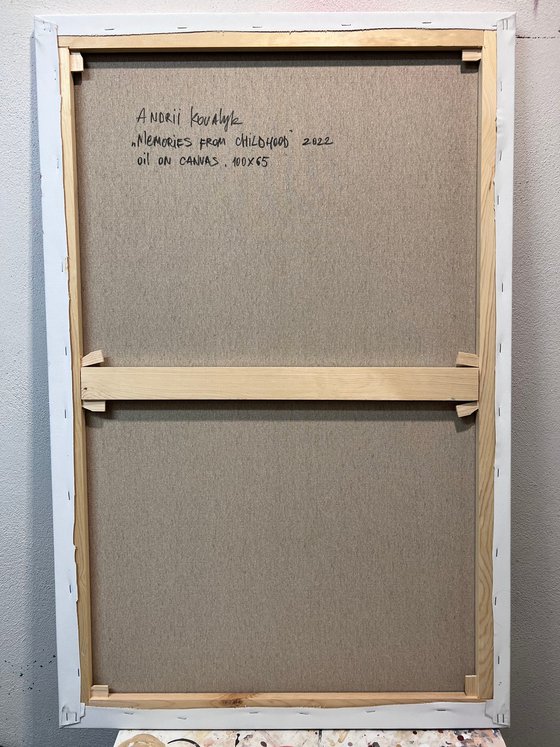 Andrii Kovalyk
„Memories from childhood" 2022
oil on canvas. 100x65